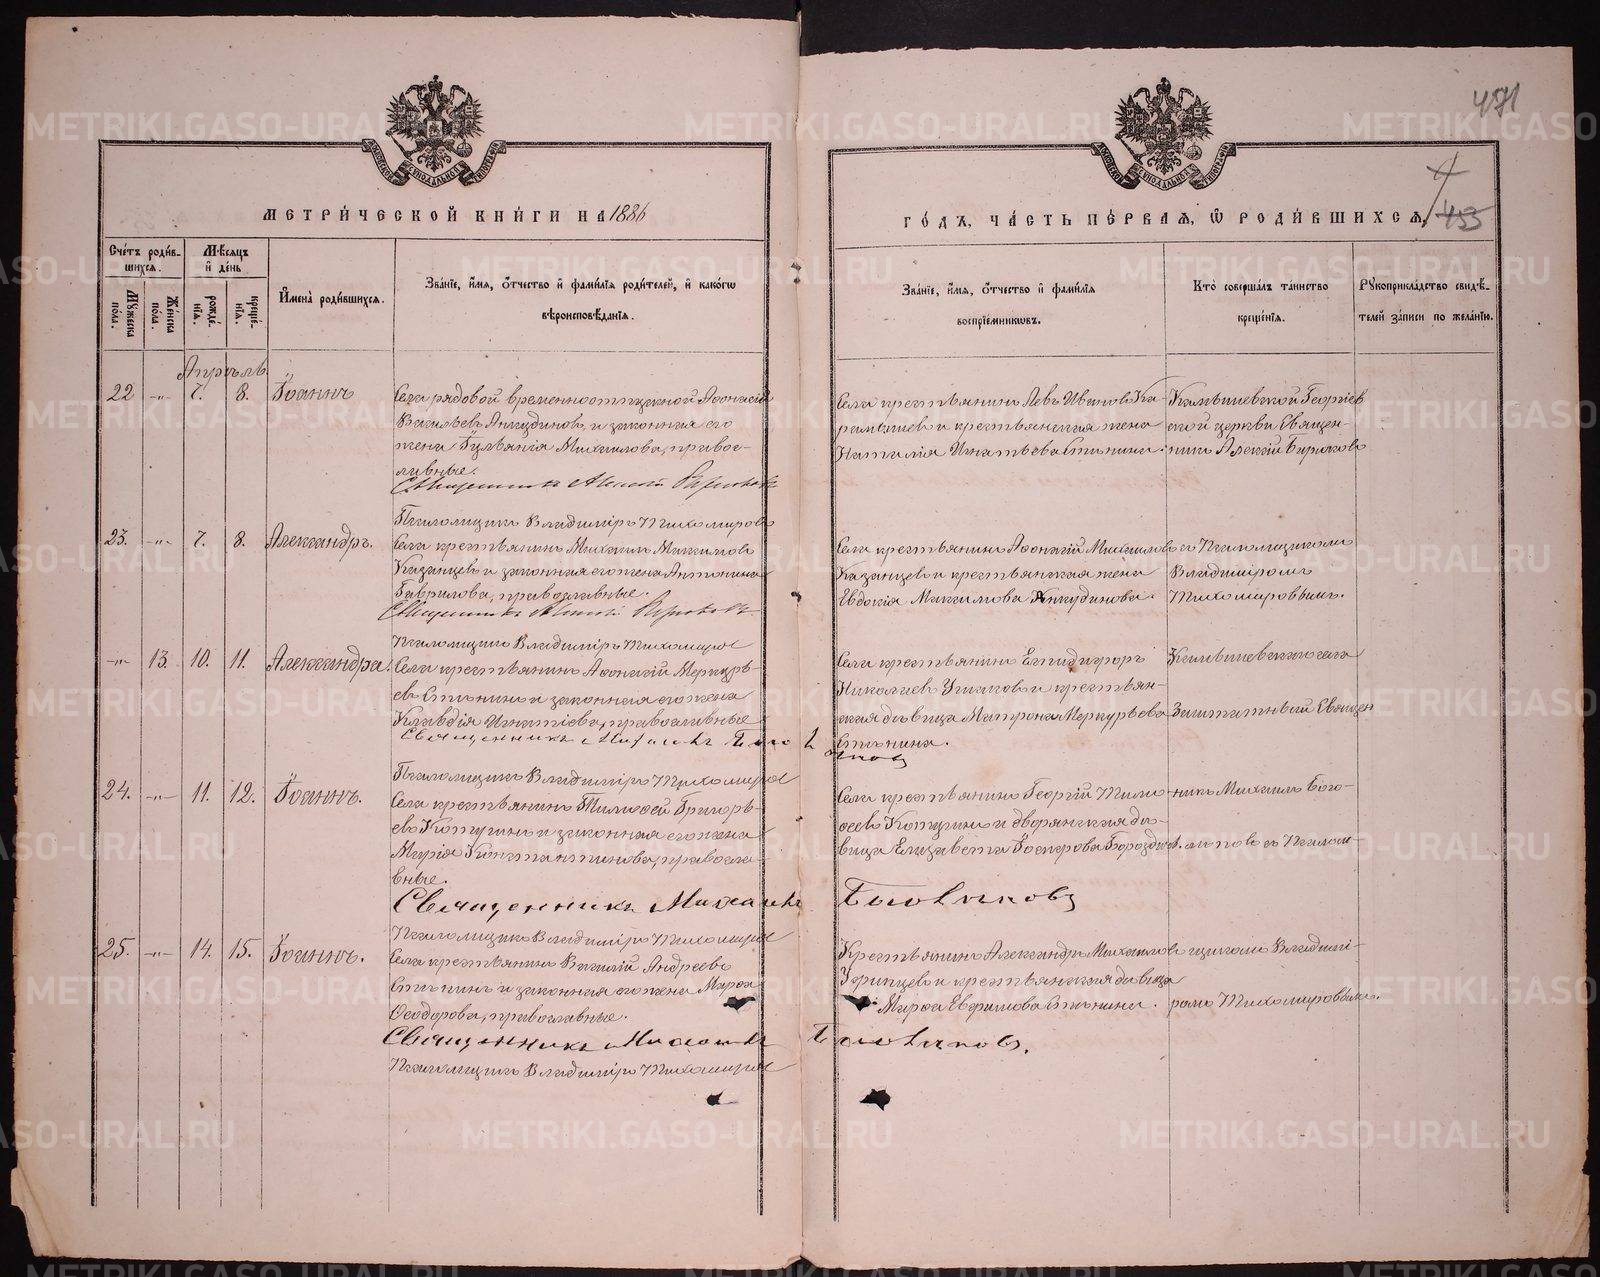 471
453
МЕТРИЧЕСКОЙ КНИГИ НА 1886
ГОДЪ, ЧАСТЬ ПЕРВАЯ, Ѡ РОДИВШИХСЯ.
Счетъ родившихся.
Мужеска пола.
Женска пола.
Мѣсяцъ и день
рожденія.
крещенія.
Имена родившихся.
Званіе, имя, отчество и фамилія родителей, и какогѡ
вѣроисповѣданія.
Званіе, имя, отчество и фамилія
воспріемниковъ.
Кто совершалъ таинство
крещенія.
Рукоприкладство свидѣтелей
записи по желанію.
Апрѣль
22 -"- 7. 8. Іоаннъ
Села рядовой временноотпускной Аѳонасій
Васильевъ Анкудиновъ, и законная его
жена Іуліанія Михаилова, православные.
Священникъ Алексій Бирюковъ
Псаломщикъ Владиміръ Тихомировъ
Села крестьянинъ Левъ Ивановъ
и крестьянская жена
Наталія Игнатьева Стенина.
Георгіевской церкви Священникъ
Алексій Бирюковъ
23. -"- 7. 8. Александръ.
Села крестьянинъ Михаилъ Максимовъ
Казанцевъ и законная его жена Антонина
Гаврилова, православные.
Священникъ Алексій Бирюковъ
Псаломщикъ Владиміръ Тихомировъ
Села крестьянинъ Аѳонасій Михаиловъ
Казанцевъ и крестьянская жена
Евдокія Максимова Анкудинова.
съ Псаломщикомъ
Владиміромъ
Тихомировымъ.
-"- 13. 10. 11. Александра.
Села крестьянинъ Аѳонасій Меркурьевъ
Стенинъ и законная его жена
Клавдія Игнатіева, православные
Священникъ Михаилъ
Псаломщикъ Владиміръ Тихомировъ
Села крестьянинъ Елпидифоръ
Николаевъ Ушаковъ и крестьянская
дѣвица Матрона Меркурьева
Стенина.
села
Заштатный Священникъ
24. -"- 11. 12. Іоаннъ.
Села крестьянинъ Тимоѳей Григорьевъ
и законная его жена
Марія Константинова, православные.
Священникъ Михаилъ
Псаломщикъ Владиміръ Тихомировъ
Села крестьянинъ Георгій Тимоѳеевъ
и дворянская дѣвица
Елизавета
Михаилъ
съ Псаломщикомъ
25. -"- 14. 15. Іоаннъ.
Села крестьянинъ Василій Андреевъ
Стенинъ и законная его жена Марѳа
Ѳеодорова, православные.
Священникъ Михаилъ
Псаломщикъ Владиміръ Тихомировъ
Крестьянинъ Александръ Михаиловъ
и крестьянская дѣвица
Марѳа Евфимова Стенина.
Владиміромъ
Тихомировымъ.
METRIKI.GASO-URAL.RU